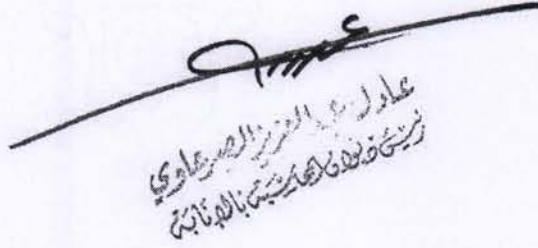 عادل عبد العزيز الصرعاوي
رئيس ديوان المحاسبة بالإنابة